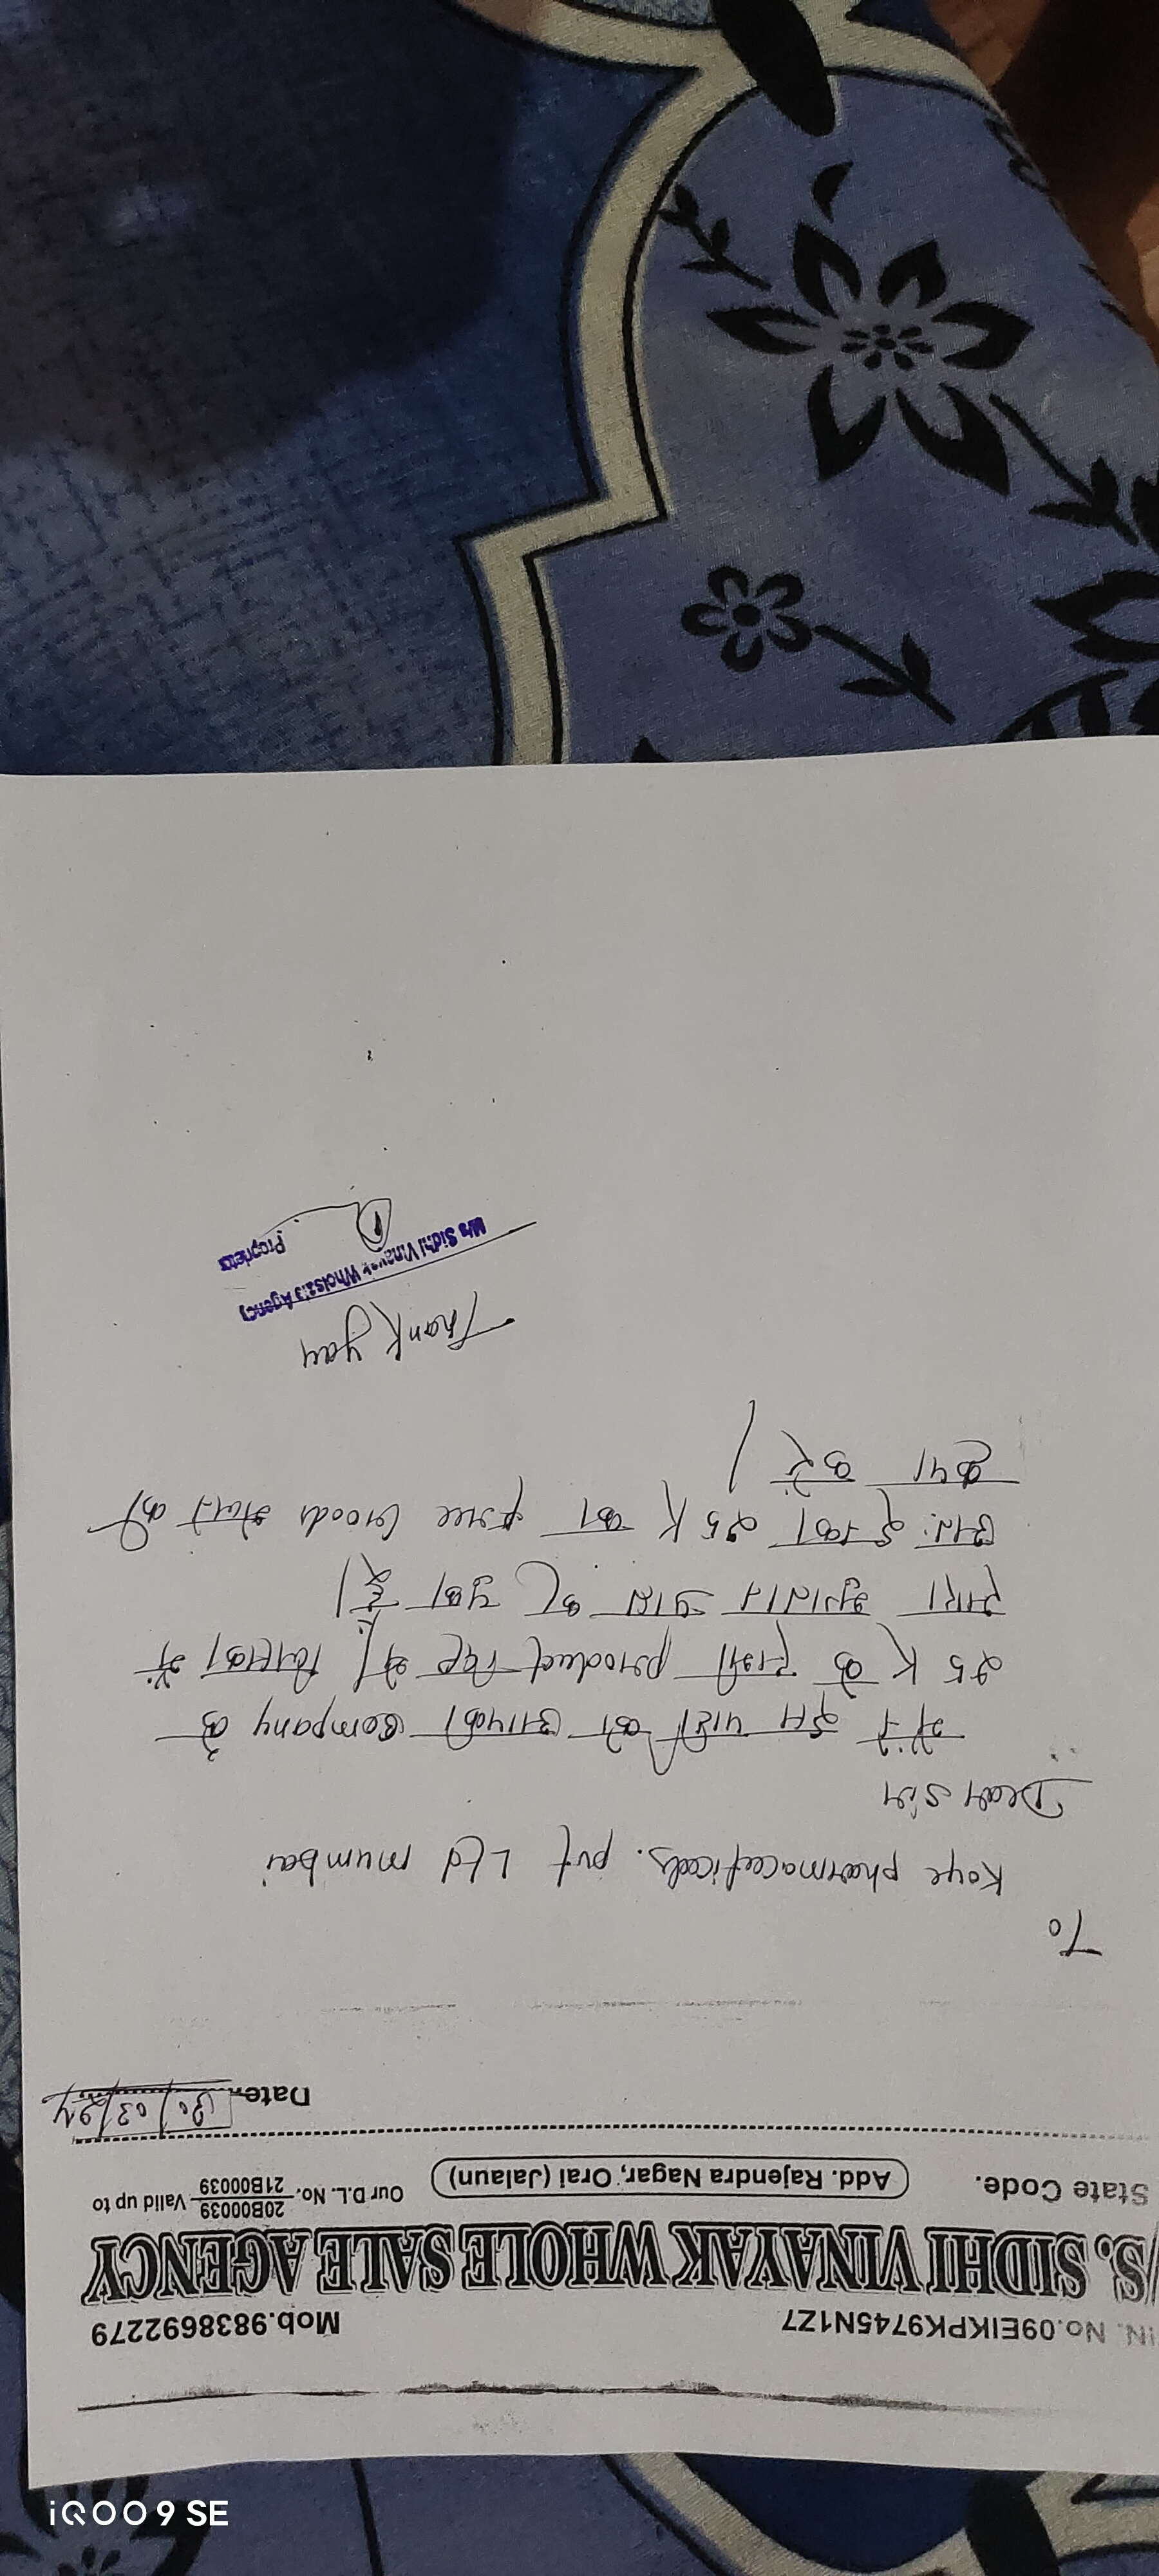 IN. No.09EIKPK9745N1Z7 Mob.9838692279
/S. SIDHI VINAYAK WHOLE SALE AGENCY
State Code. Add. Rajendra Nagar, Orai (Jalaun) Our D.L. No. 20B00039 21B00039 Valid up to
Date.. 30/03/24
To
Kaye pharmaceuticals. pvt Ltd mumbai
Dear sir
मैने इस पार्टी को आपकी company के
25 K के सभी product दिए थे। जिसका मैं
सारा भुगतान प्राप्त कर चुका हूँ।
अतः इनका 25 K का free Goods माल की
कृपा करें।
Thank you
M/s Sidhi Vinayak Wholsale Agency
Proprietor
iQOO 9 SE